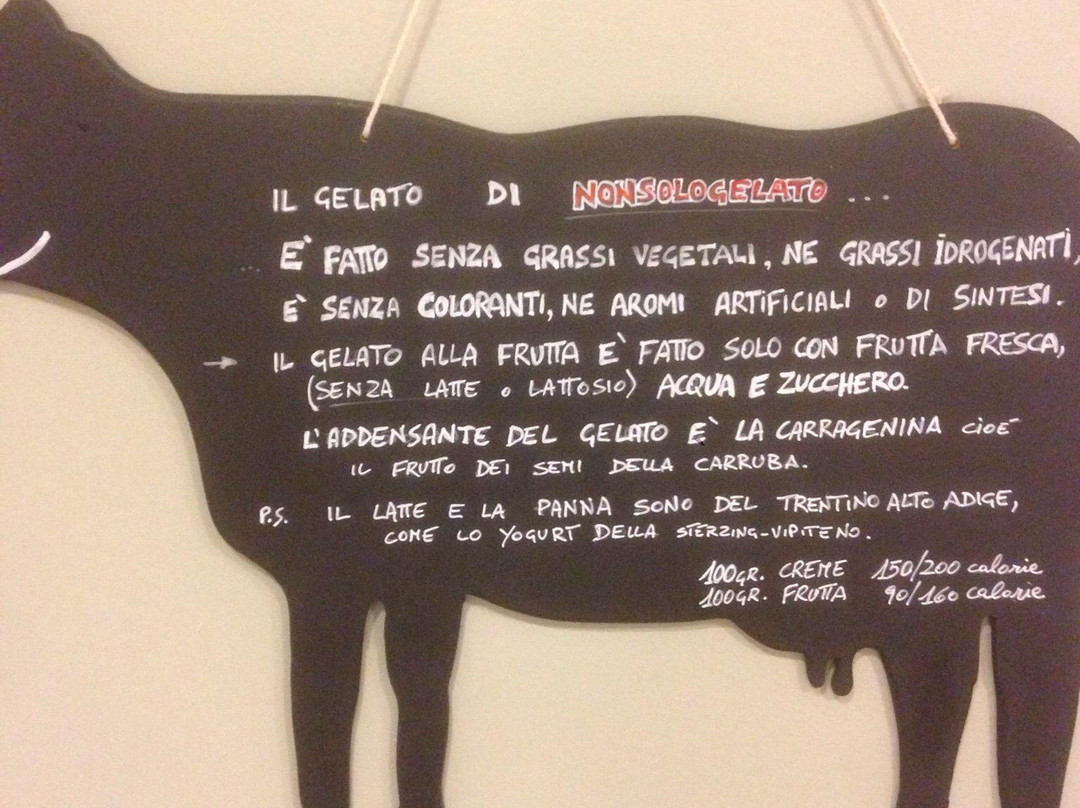 IL GELATO DI NONSOLOGELATO ...
... E' FATTO SENZA GRASSI VEGETALI, NE GRASSI IDROGENATI,
E' SENZA COLORANTI, NE AROMI ARTIFICIALI O DI SINTESI.
→ IL GELATO ALLA FRUTTA E' FATTO SOLO CON FRUTTA FRESCA,
(SENZA LATTE O LATTOSIO) ACQUA E ZUCCHERO.
L'ADDENSANTE DEL GELATO E' LA CARRAGENINA CIOE'
IL FRUTTO DEI SEMI DELLA CARRUBA.
P.S. IL LATTE E LA PANNA SONO DEL TRENTINO ALTO ADIGE,
COME LO YOGURT DELLA STERZING-VIPITENO.
100GR. CREME 150/200 calorie
100GR. FRUTTA 90/160 calorie